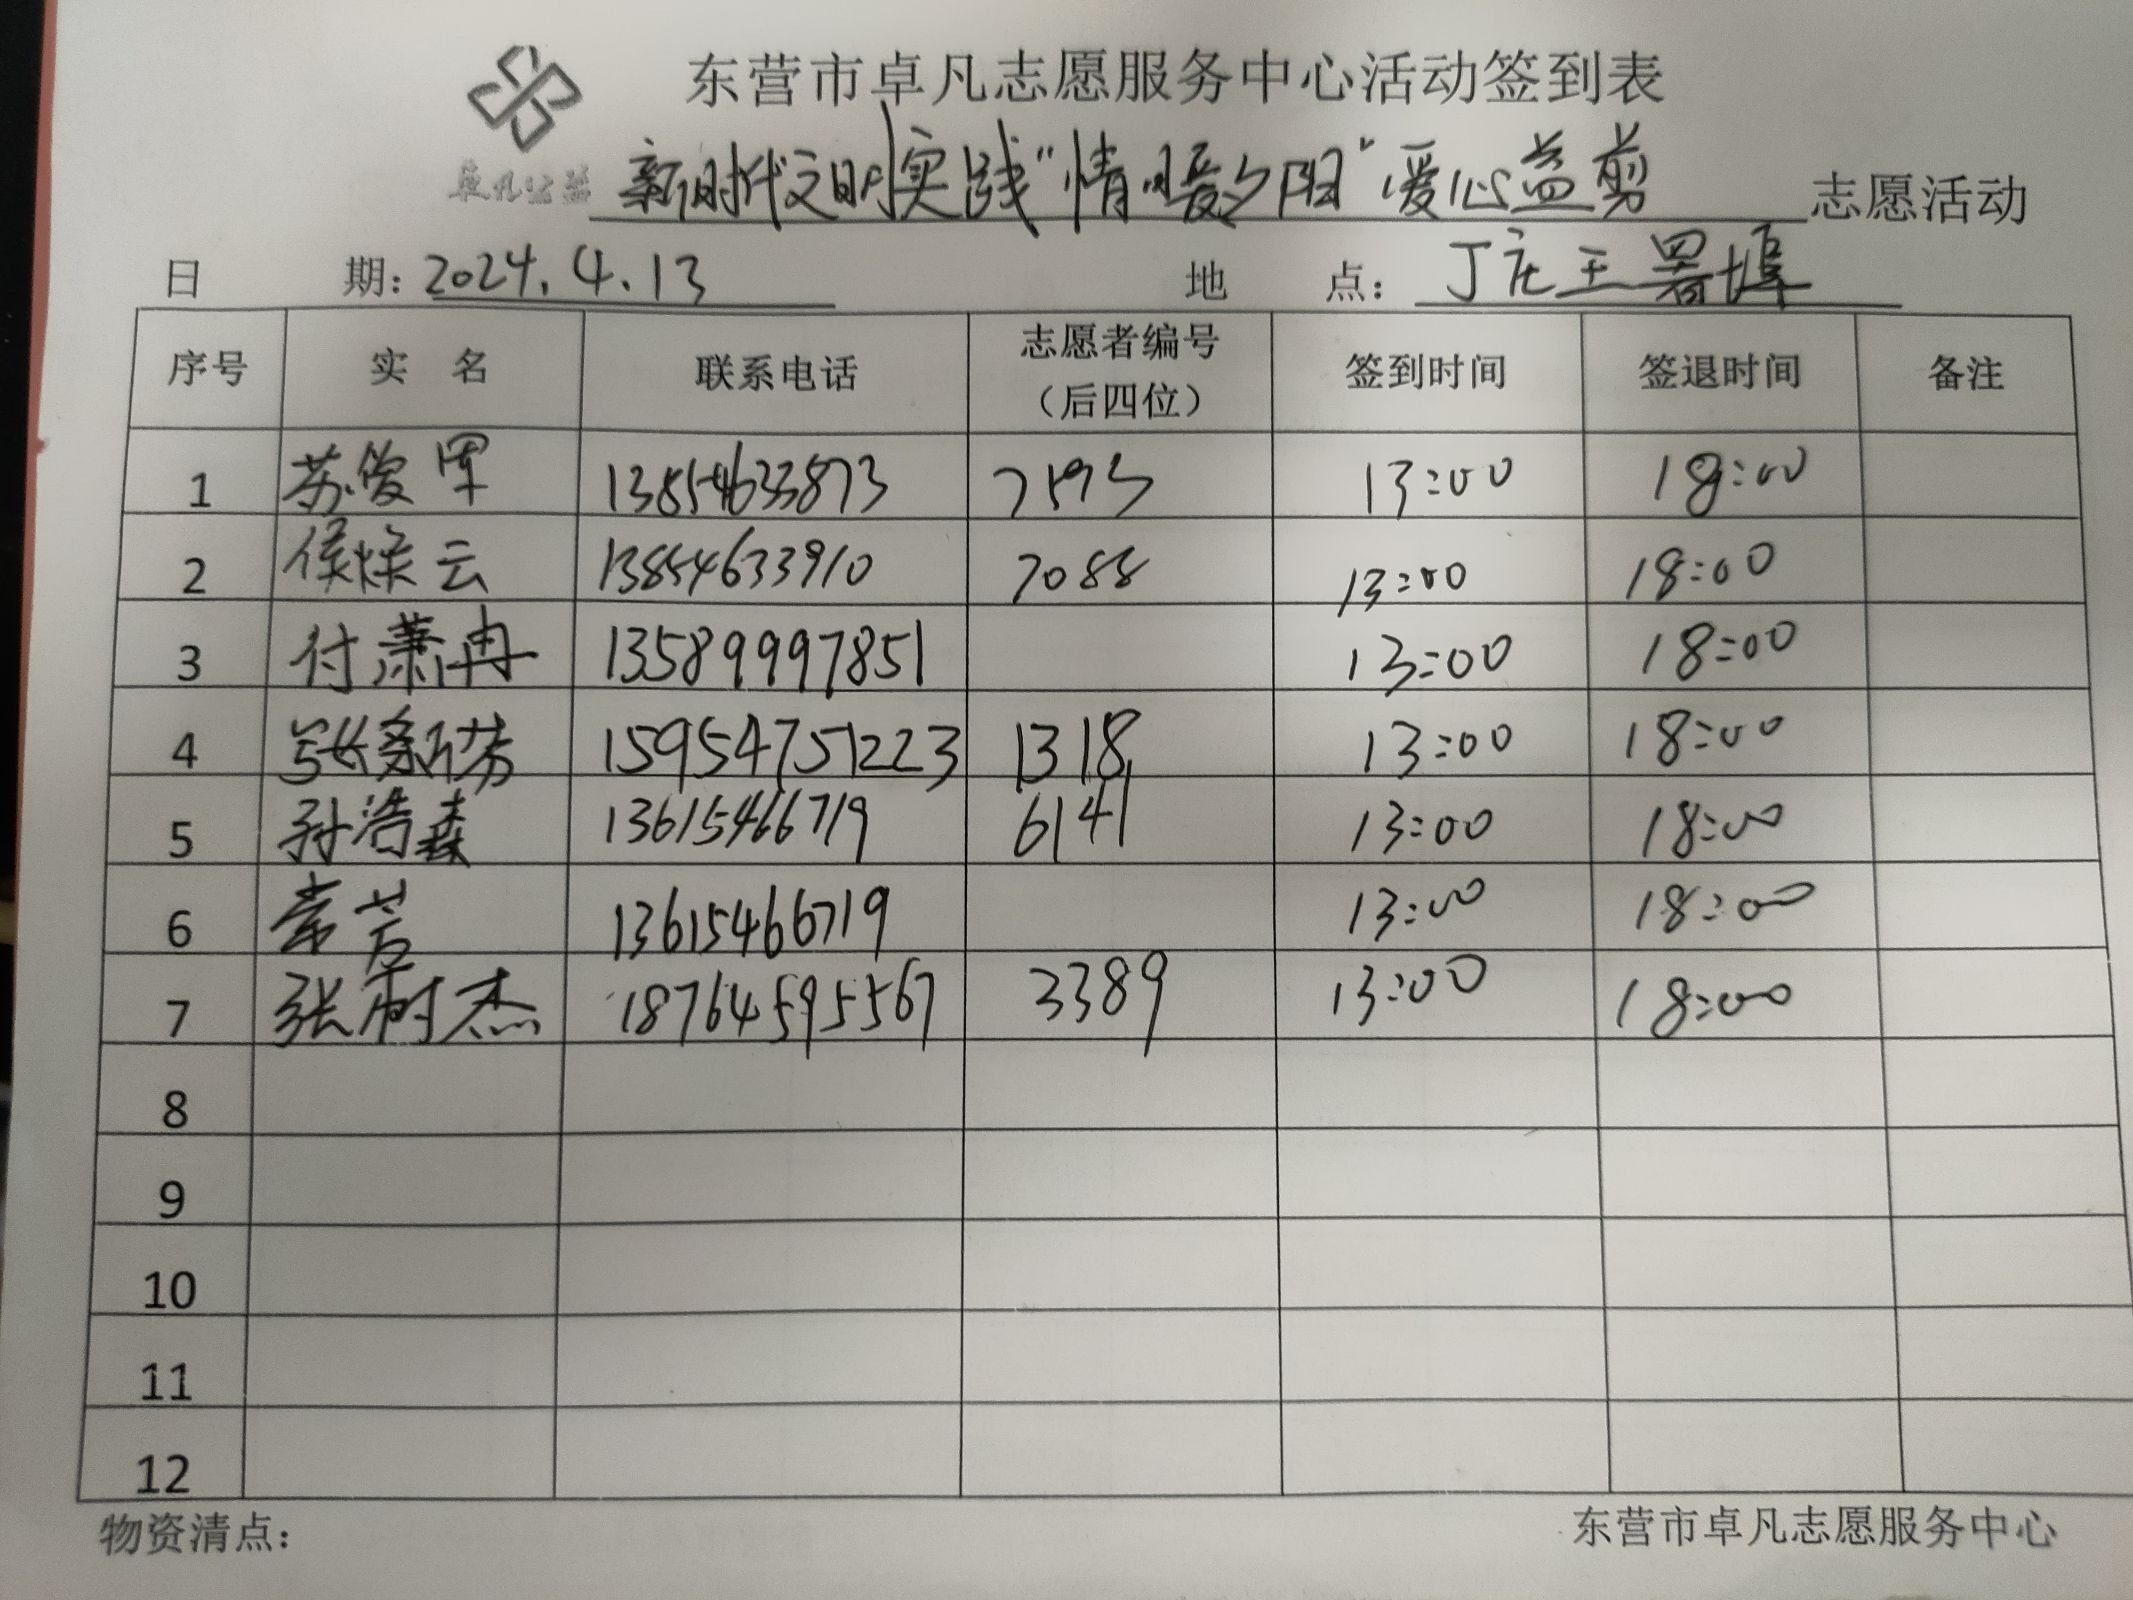 东营市卓凡志愿服务中心活动签到表
卓凡公益 新时代文明实践“情暖夕阳”爱心益剪 志愿活动
日 期：2024.4.13 地 点：丁庄王署埠
序号 实 名 联系电话 志愿者编号（后四位） 签到时间 签退时间 备注
1 苏俊军 13854633873 7593 13:00 18:00
2 侯焕云 13854633910 7088 13:00 18:00
3 付萧冉 13589997851 13:00 18:00
4 张新芳 15954751223 1318 13:00 18:00
5 孙浩森 13615466719 6141 13:00 18:00
6 常芳 13615466719 13:00 18:00
7 张树杰 18764595567 3389 13:00 18:00
8
9
10
11
12
物资清点： 东营市卓凡志愿服务中心